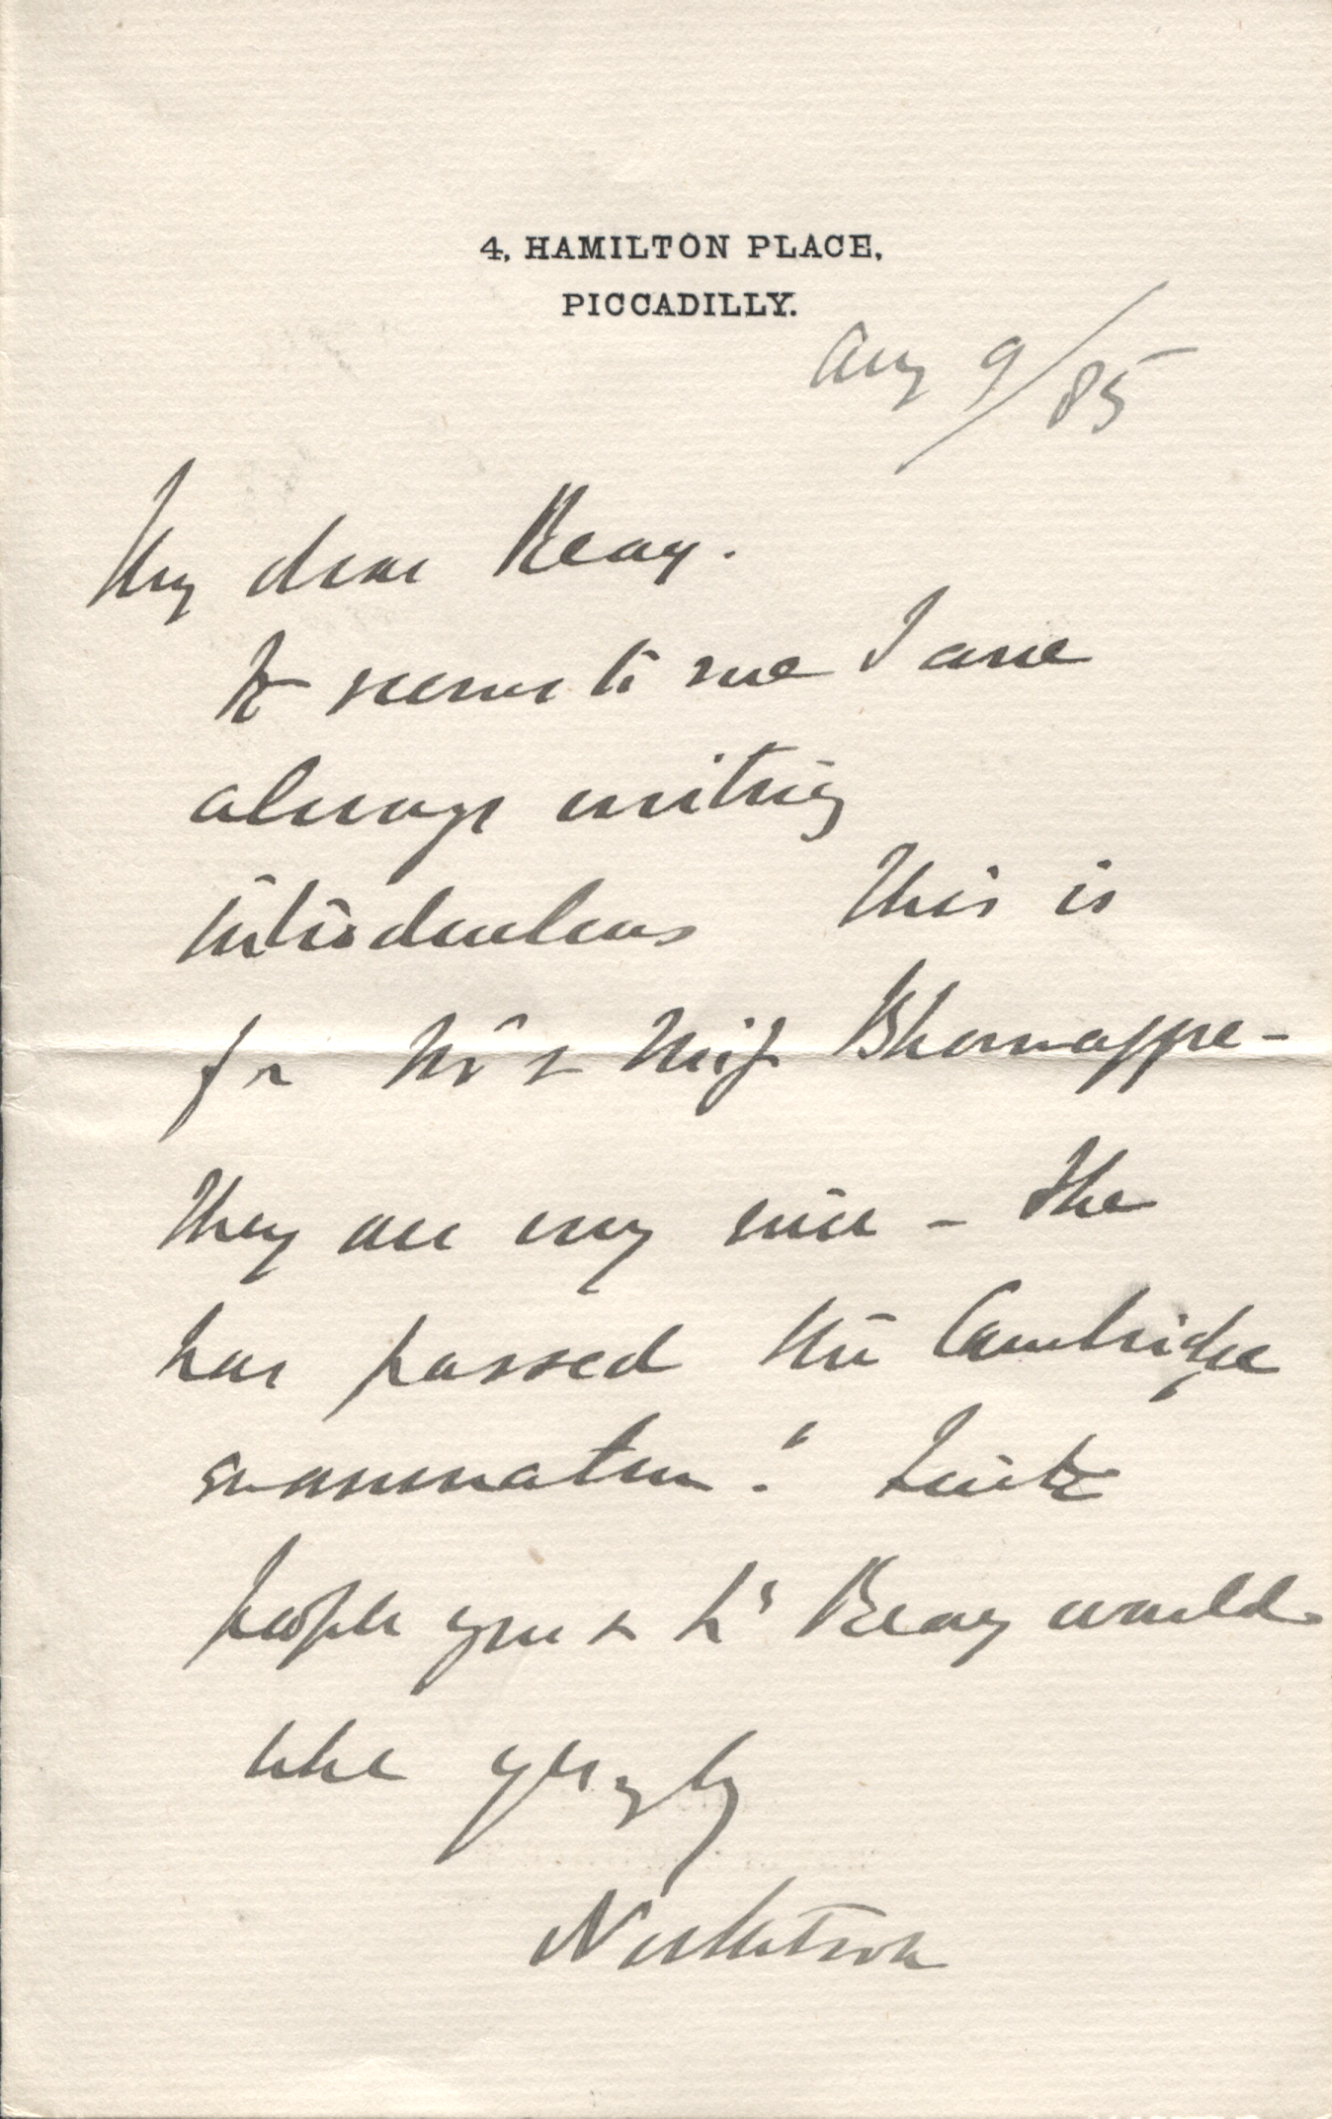 4, HAMILTON PLACE,
PICCADILLY.
Aug 9/85
My dear Reay.
It seems to me I am
always writing
introductions This is
for Mr & Miss Bhownaggree -
They are very nice - She
has passed the Cambridge
examination." Quite
people you & Ly Reay would
like yrs
Northbrook